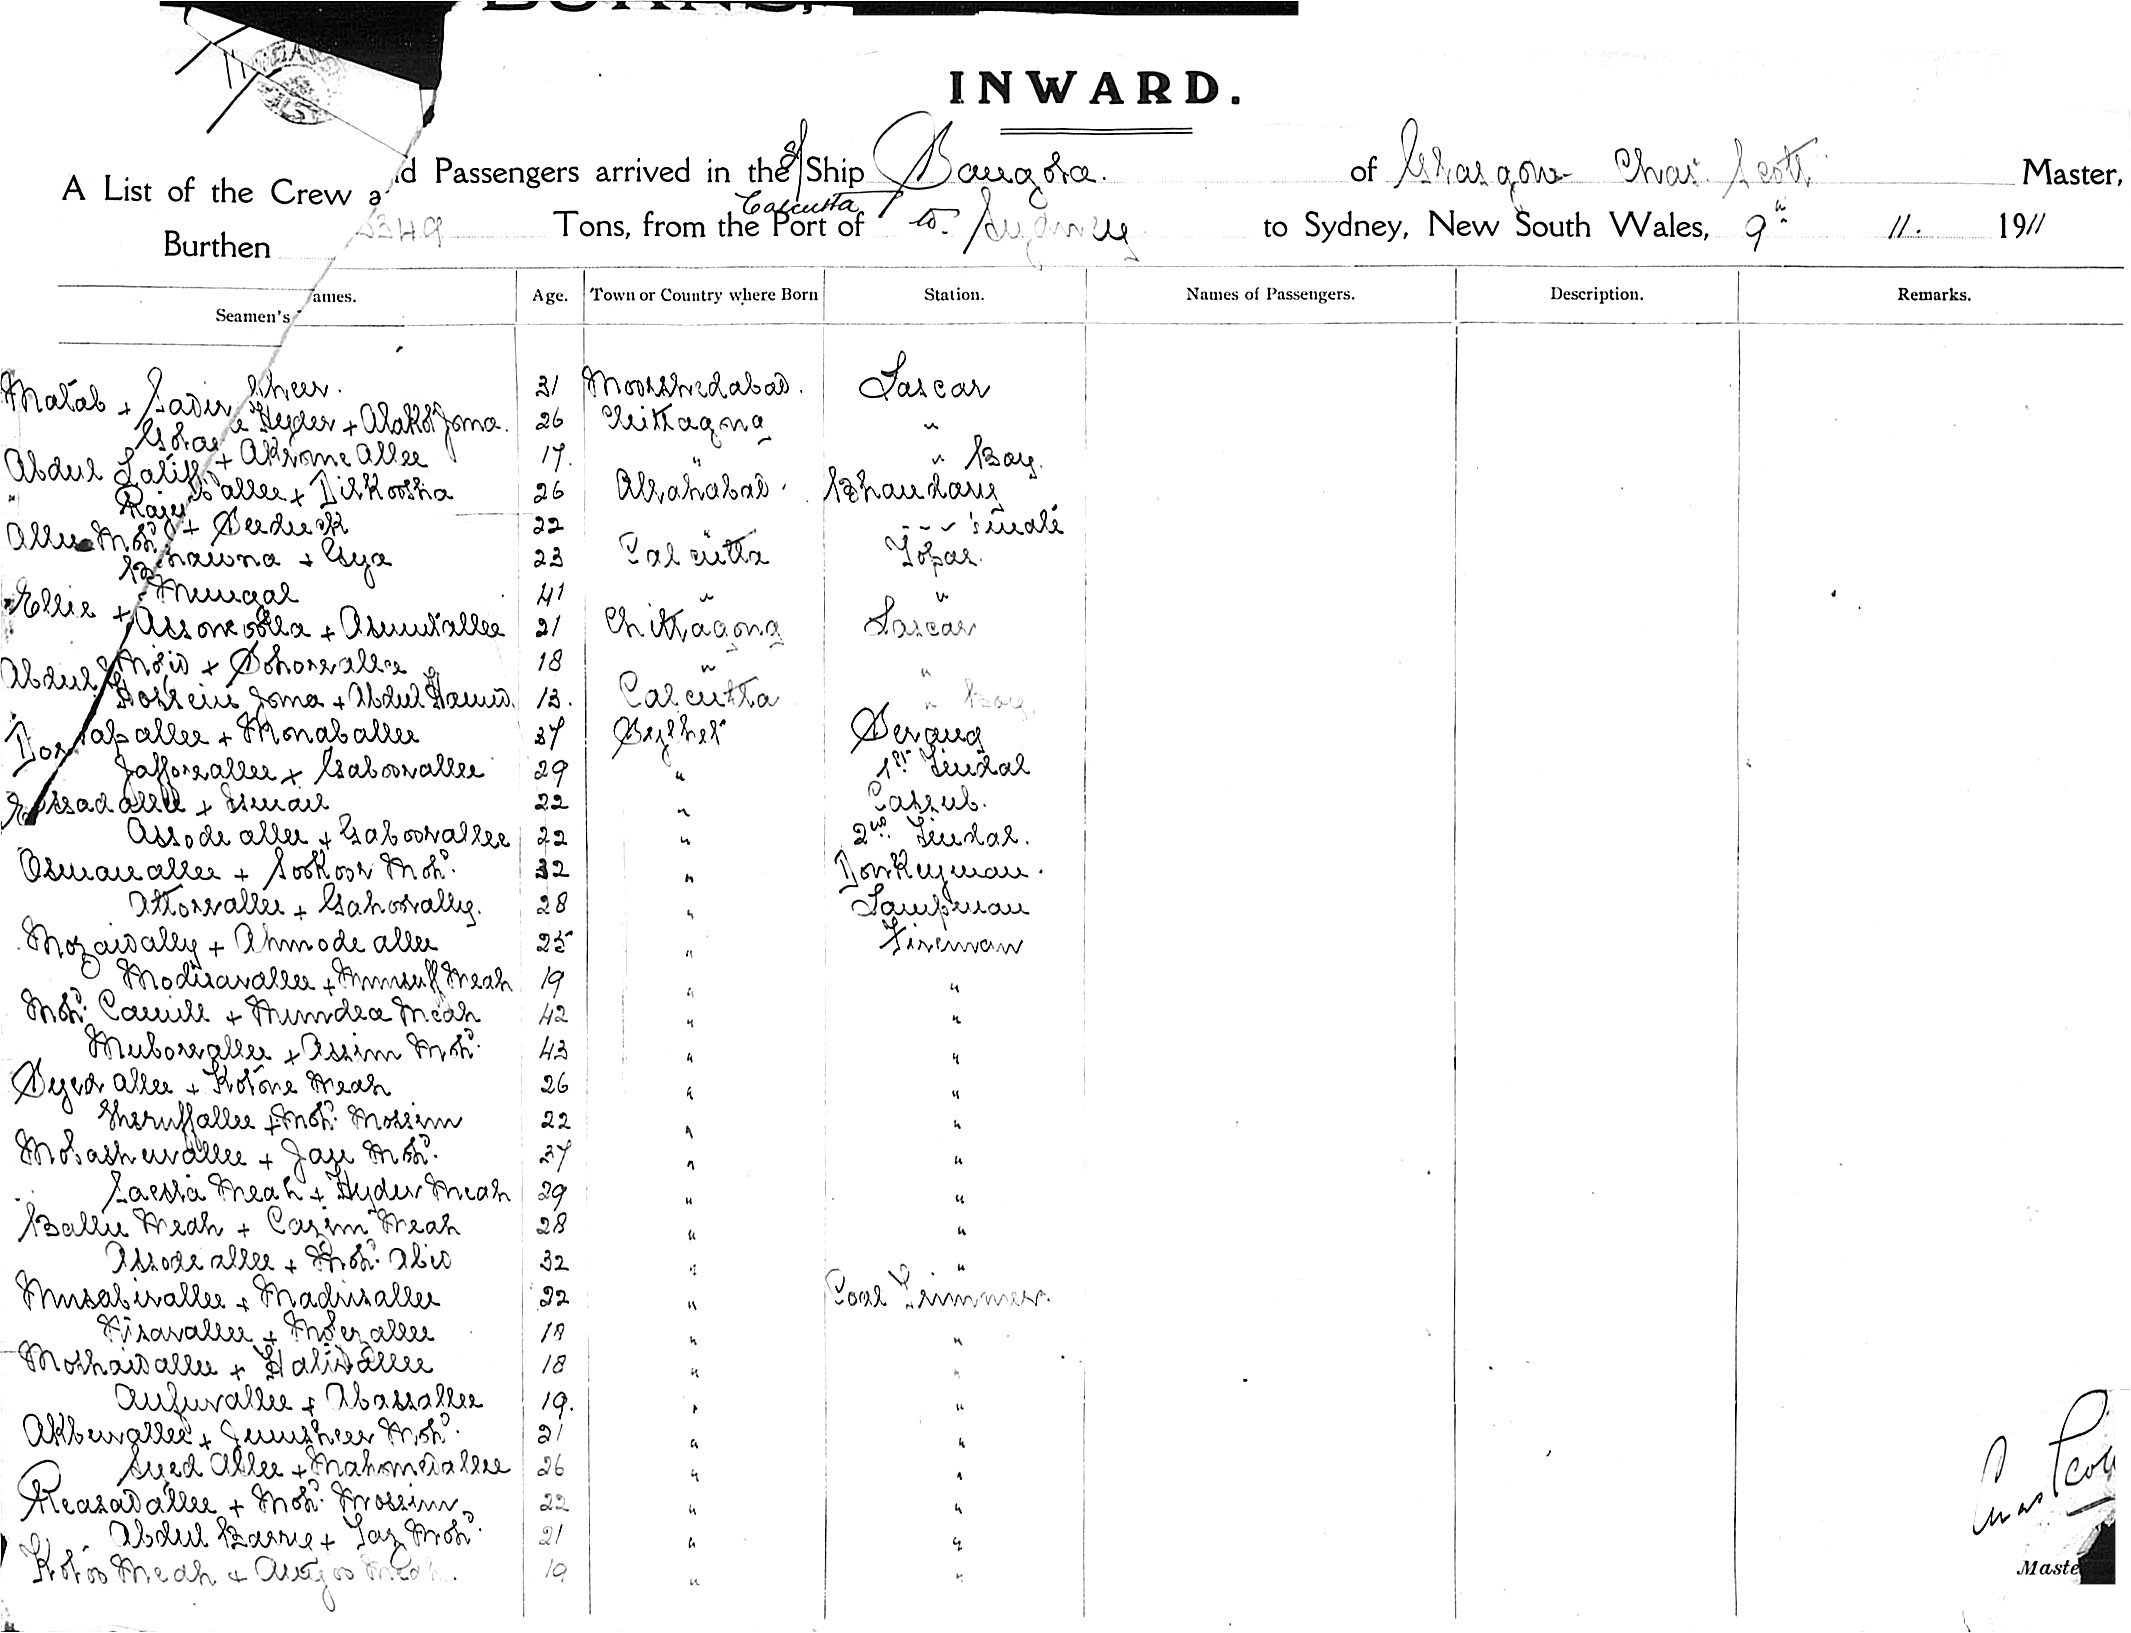 INWARD.
A List of the Crew and Passengers arrived in the S/ Ship Bangora. of Glasgow Chas. Scott Master,
Burthen 3349 Tons, from the Port of Calcutta to Sydney to Sydney, New South Wales, 9th 11. 1911
Seamen's Names. Age. Town or Country where Born Station. Names of Passengers. Description. Remarks.
Matab + Sadir Sheer. 31 Moorshedabad. Lascar
Hyder + 26 Chittagong "
Abdul Latiff + Akrome Allee 17. " " Boy.
" Rajuballee + Dilkoosha 26 Allahabad. Bhandary
Allee Moh'd + Seedick 22 " " " 's mate
+ Gya 23 Calcutta Topas.
Ellie + Mungal 41 " "
Assomoolla + Asmutallee 21 Chittagong Lascar
Abdul Mojid + Sohorevallee 18 " "
Hossein Joma + Abdul Hamid. 13. Calcutta " Boy.
+ Monaballee 37 Sylhet Serang
Jafforeallee + Gaboorallee 29 " 1st Tindal
+ Ismail 22 " Cassub.
Assodeallee + Gaboorallee 22 " 2nd Tindal.
Osmanallee + Sookoor Moh'd. 32 " Donkeyman.
Attorvallee + Gahoorally. 28 " Lampman
Mozaidally + Ahmodeallee 25 " Fireman
Modiravallee + Munsuff Meah 19 " "
Moh'd. Camill + Mundea Meah 42 " "
Muborevallee + Assim Moh'd. 43 " "
Syed Allee + Kotone Meah 26 " "
Sheruffallee + Moh'd. Mossim 22 " "
Mobashurallee + Jan Moh'd. 37 " "
Meah + Hyder Meah 29 " "
Ballie Meah + Cazim Meah 28 " "
Assodeallee + Moh'd. Abid 32 " "
Musabirallee + Madrisallee 22 " Coal Trimmer.
Kisaravallee + Mofezallee 18 " "
Moshaidallee + Halidallee 18 " "
+ Abassallee 19. " "
Akburallee + Jumsheer Moh'd. 21 " "
Syed Allee + Mahomedallee 26 " "
Reasadallee + Moh'd. Mossim 22 " "
Abdul Barrie + Taz Moh'd. 21 " "
Meah + Meah. 19 " "
Chas Scott
Master